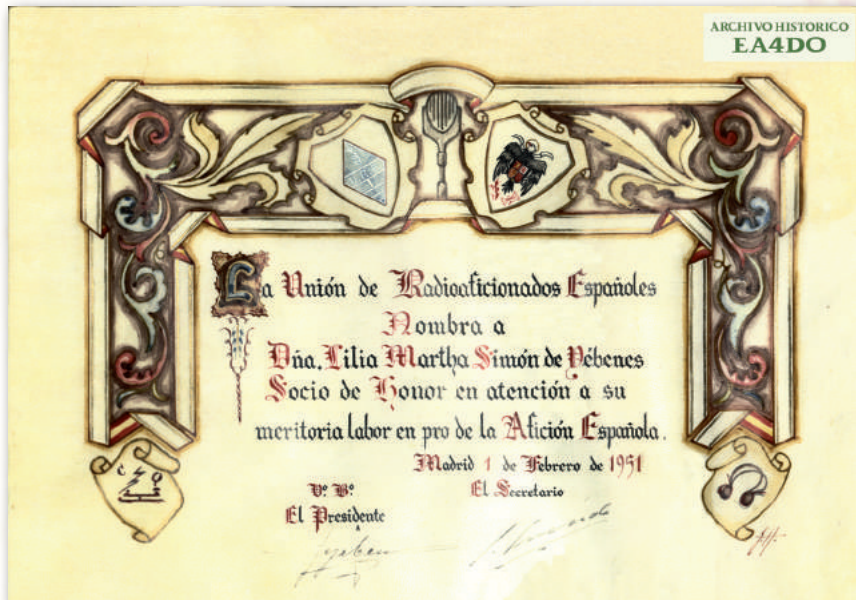 ARCHIVO HISTORICO
EA4DO
La Unión de Radioaficionados Españoles
Nombra a
Dña. Lilia Martha Simón de Yébenes
Socio de Honor en atención a su
meritoria labor en pro de la Afición Española.
Madrid 1 de Febrero de 1951
Vº Bº
El Secretario
El Presidente
C Q